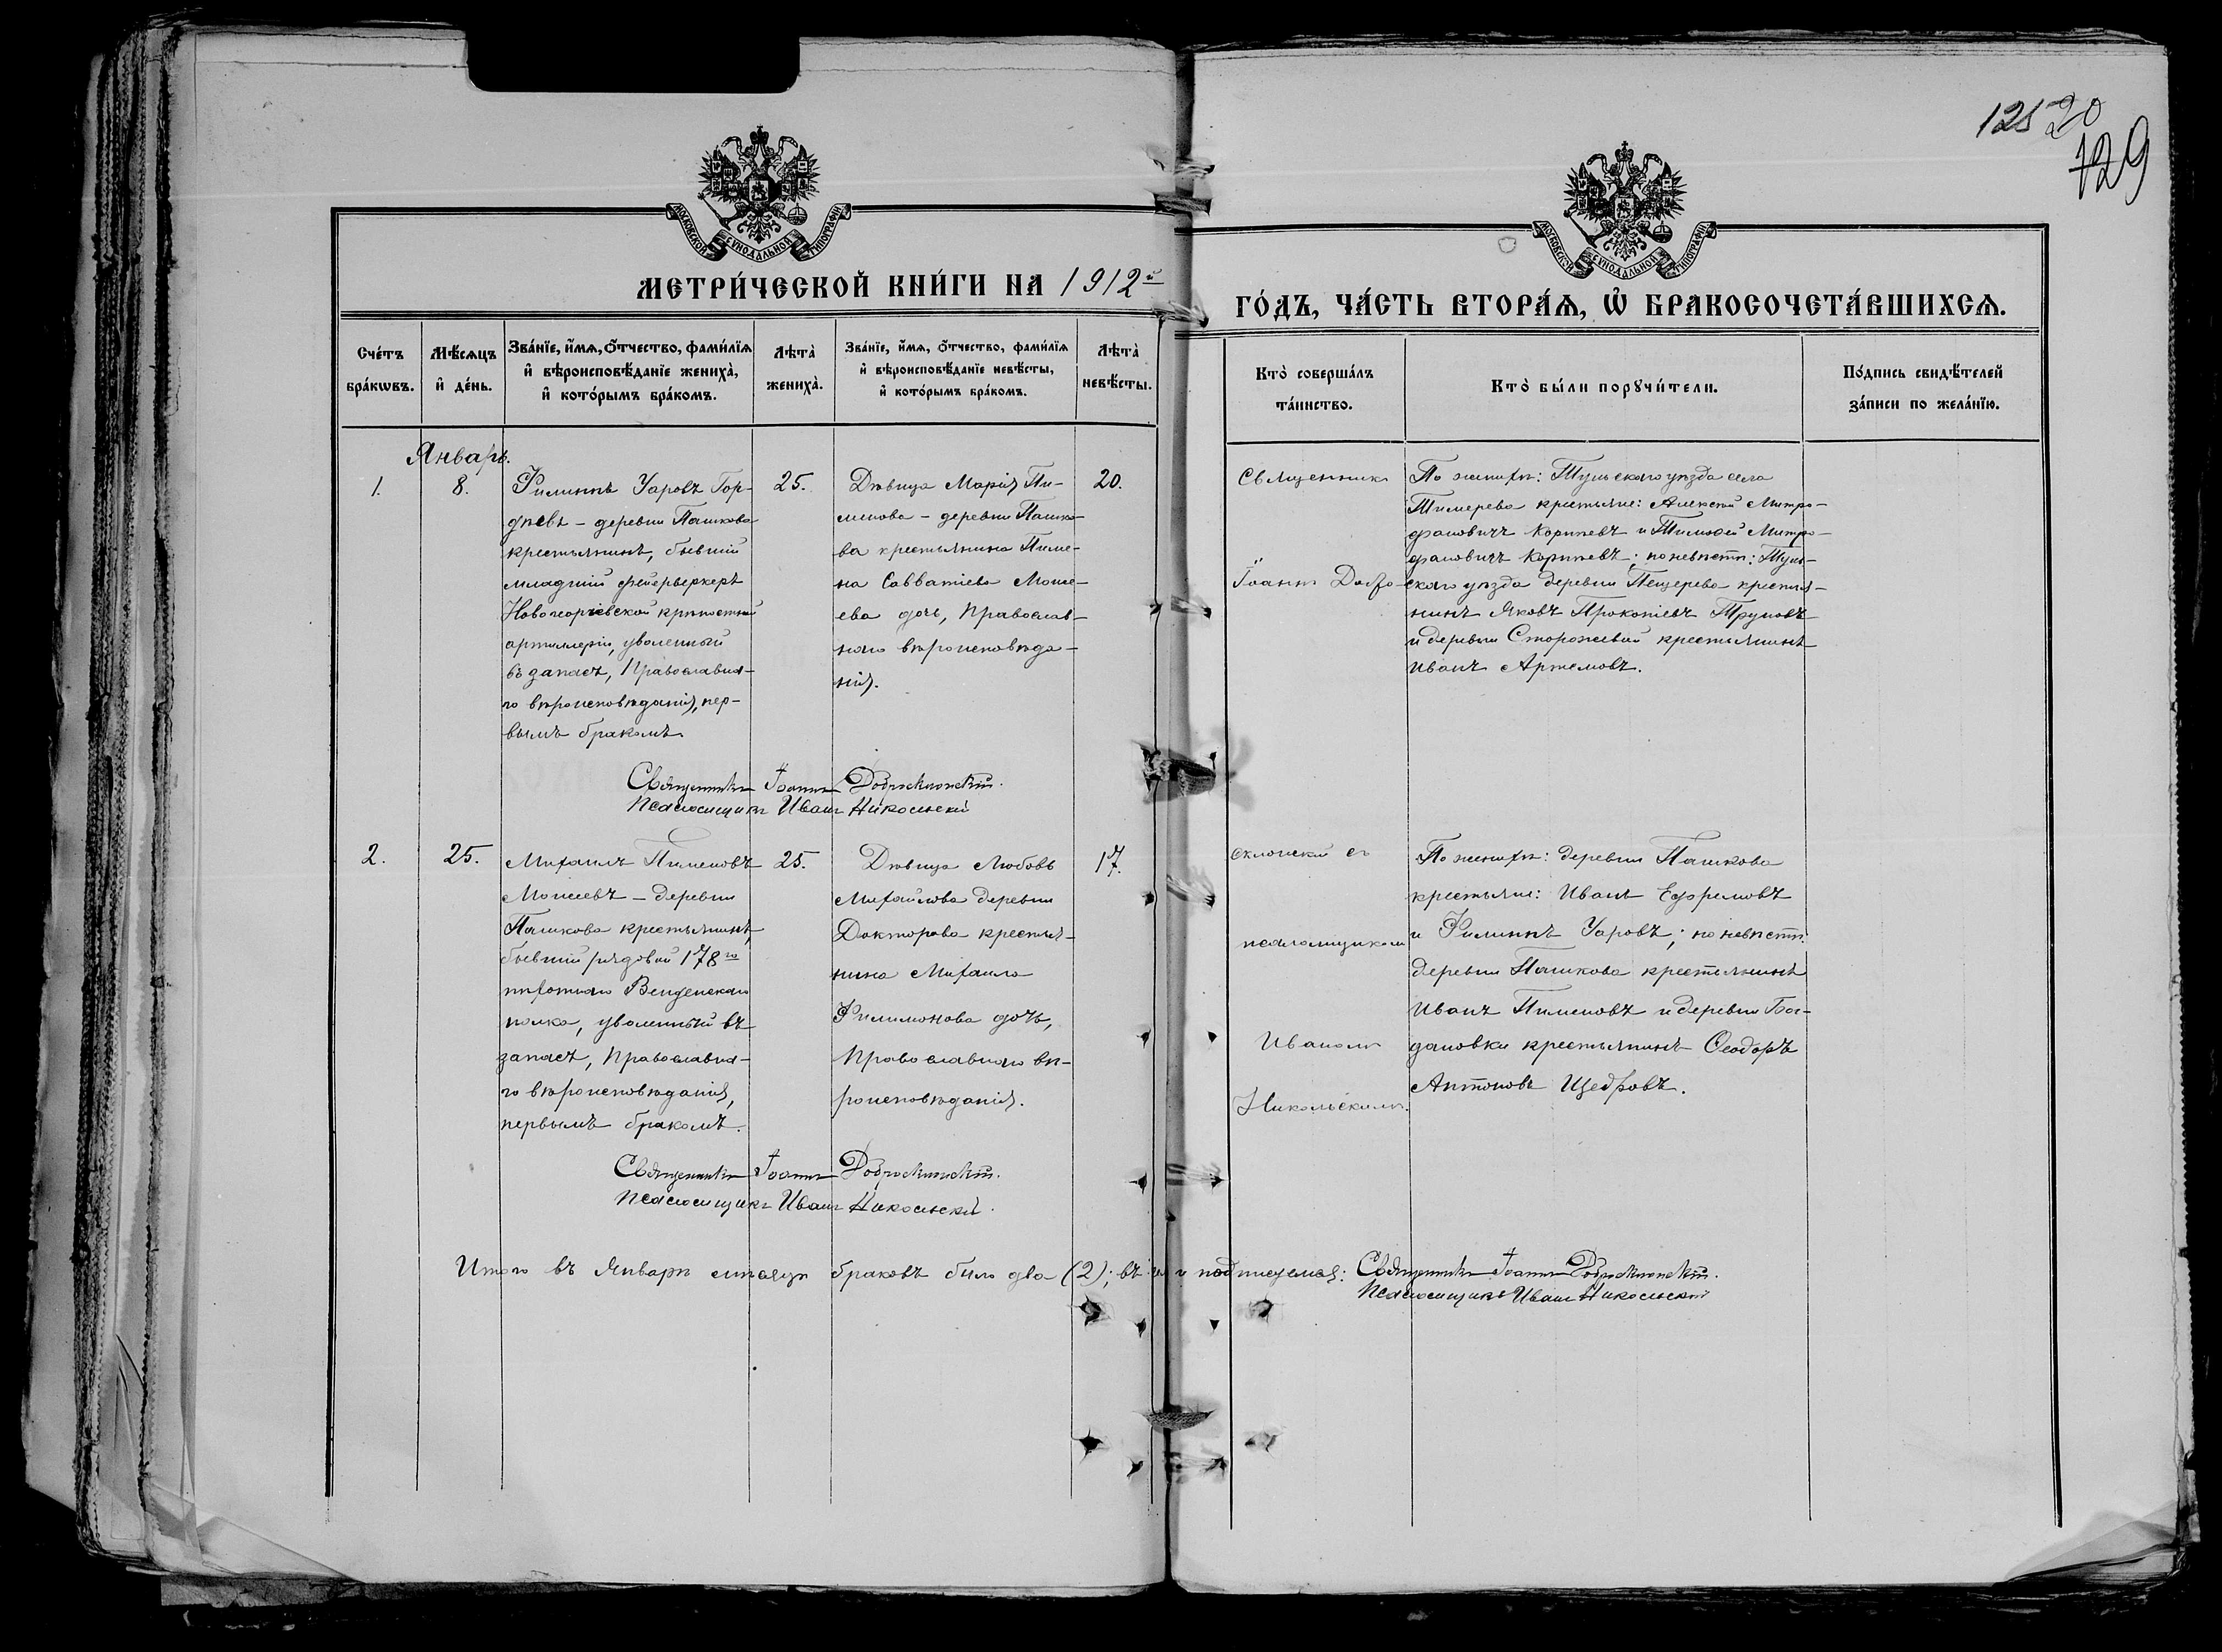 12520
129
МОСКОВСКОЙ СѴНОДАЛЬНОЙ ТИПОГРАФІИ
МОСКОВСКОЙ СѴНОДАЛЬНОЙ ТИПОГРАФІИ
МЕТРИ́ЧЕСКОЙ КНИ́ГИ НА 1912й
ГО́ДЪ, ЧА́СТЬ ВТОРА́Ѧ, Ѡ҆ БРАКОСОЧЕТА́ВШИХСѦ.
Сче́тъ
бра́кѡвъ.
Мѣ́сѧцъ
и҆ де́нь.
Зва́нїе, и҆́мѧ, ѻ҆́тчество, фами́лїѧ
и҆ вѣроисповѣ́данїе жениха̀,
и҆ кото́рымъ бра́комъ.
Лѣта̀
жениха̀.
Зва́нїе, и҆́мѧ, ѻ҆́тчество, фами́лїѧ
и҆ вѣроисповѣ́данїе невѣ́сты,
и҆ кото́рымъ бра́комъ.
Лѣта̀
невѣ́сты.
Кто̀ соверша́лъ
та́инство.
Кто̀ бы́ли порꙋчи́тели.
По́дпись свидѣ́телей
за́писи по жела́нїю.
Январь.
1.
8.
Филиппъ Уаровъ Гор-
дѣевъ – деревни Пашкова
крестьянинъ, бывшій
младшій фейерверкеръ
Новогеоргіевской крѣпостной
артиллеріи, уволенный
въ запасъ, Православна-
го вѣроисповѣданія, пер-
вымъ бракомъ.
25.
Дѣвица Марія Пи-
менова – деревни Пашко-
ва крестьянина Пиме-
на Савватіева Моисе-
ева дочь, Православ-
наго вѣроисповѣда-
нія.
20.
Священникъ
Іоаннъ Добро-
По женихѣ: Тульскаго уѣзда села
Тимерева крестьяне: Алексѣй Митро-
фановичъ Корнѣевъ и Тимофей Митро-
фановичъ Корнѣевъ; по невѣстѣ: Туль-
скаго уѣзда деревни Пещерева крестья-
нинъ Яковъ Прокопіевъ Труновъ
и деревни Сторожевой крестьянинъ
Иванъ Артемовъ.
Священникъ Іоаннъ Доброклонскій.
Псаломщикъ Иванъ Никольскій
2.
25.
Михаилъ Пименовъ
Моисеевъ – деревни
Пашкова крестьянинъ,
бывшій рядовой 178го
пѣхотнаго Венденскаго
полка, уволенный въ
запасъ, Православна-
го вѣроисповѣданія,
первымъ бракомъ.
25.
Дѣвица Любовь
Михайлова деревни
Докторова крестья-
нина Михаила
Филимонова дочь,
Православнаго вѣ-
роисповѣданія.
17.
склонскій съ
псаломщикомъ
Иваномъ
Никольскимъ.
По женихѣ: деревни Пашкова
крестьяне: Иванъ Ефремовъ
и Филиппъ Уаровъ; по невѣстѣ:
деревни Пашкова крестьянинъ
Иванъ Пименовъ и деревни Бог-
дановки крестьянинъ Ѳеодоръ
Антоновъ Щедровъ.
Священникъ Іоаннъ Доброклонскій.
Псаломщикъ Иванъ Никольскій.
Итого въ Январѣ мѣсяцѣ браковъ было два (2); въ чемъ и подписуемся: Священникъ Іоаннъ Доброклонскій.
Псаломщикъ Иванъ Никольскій